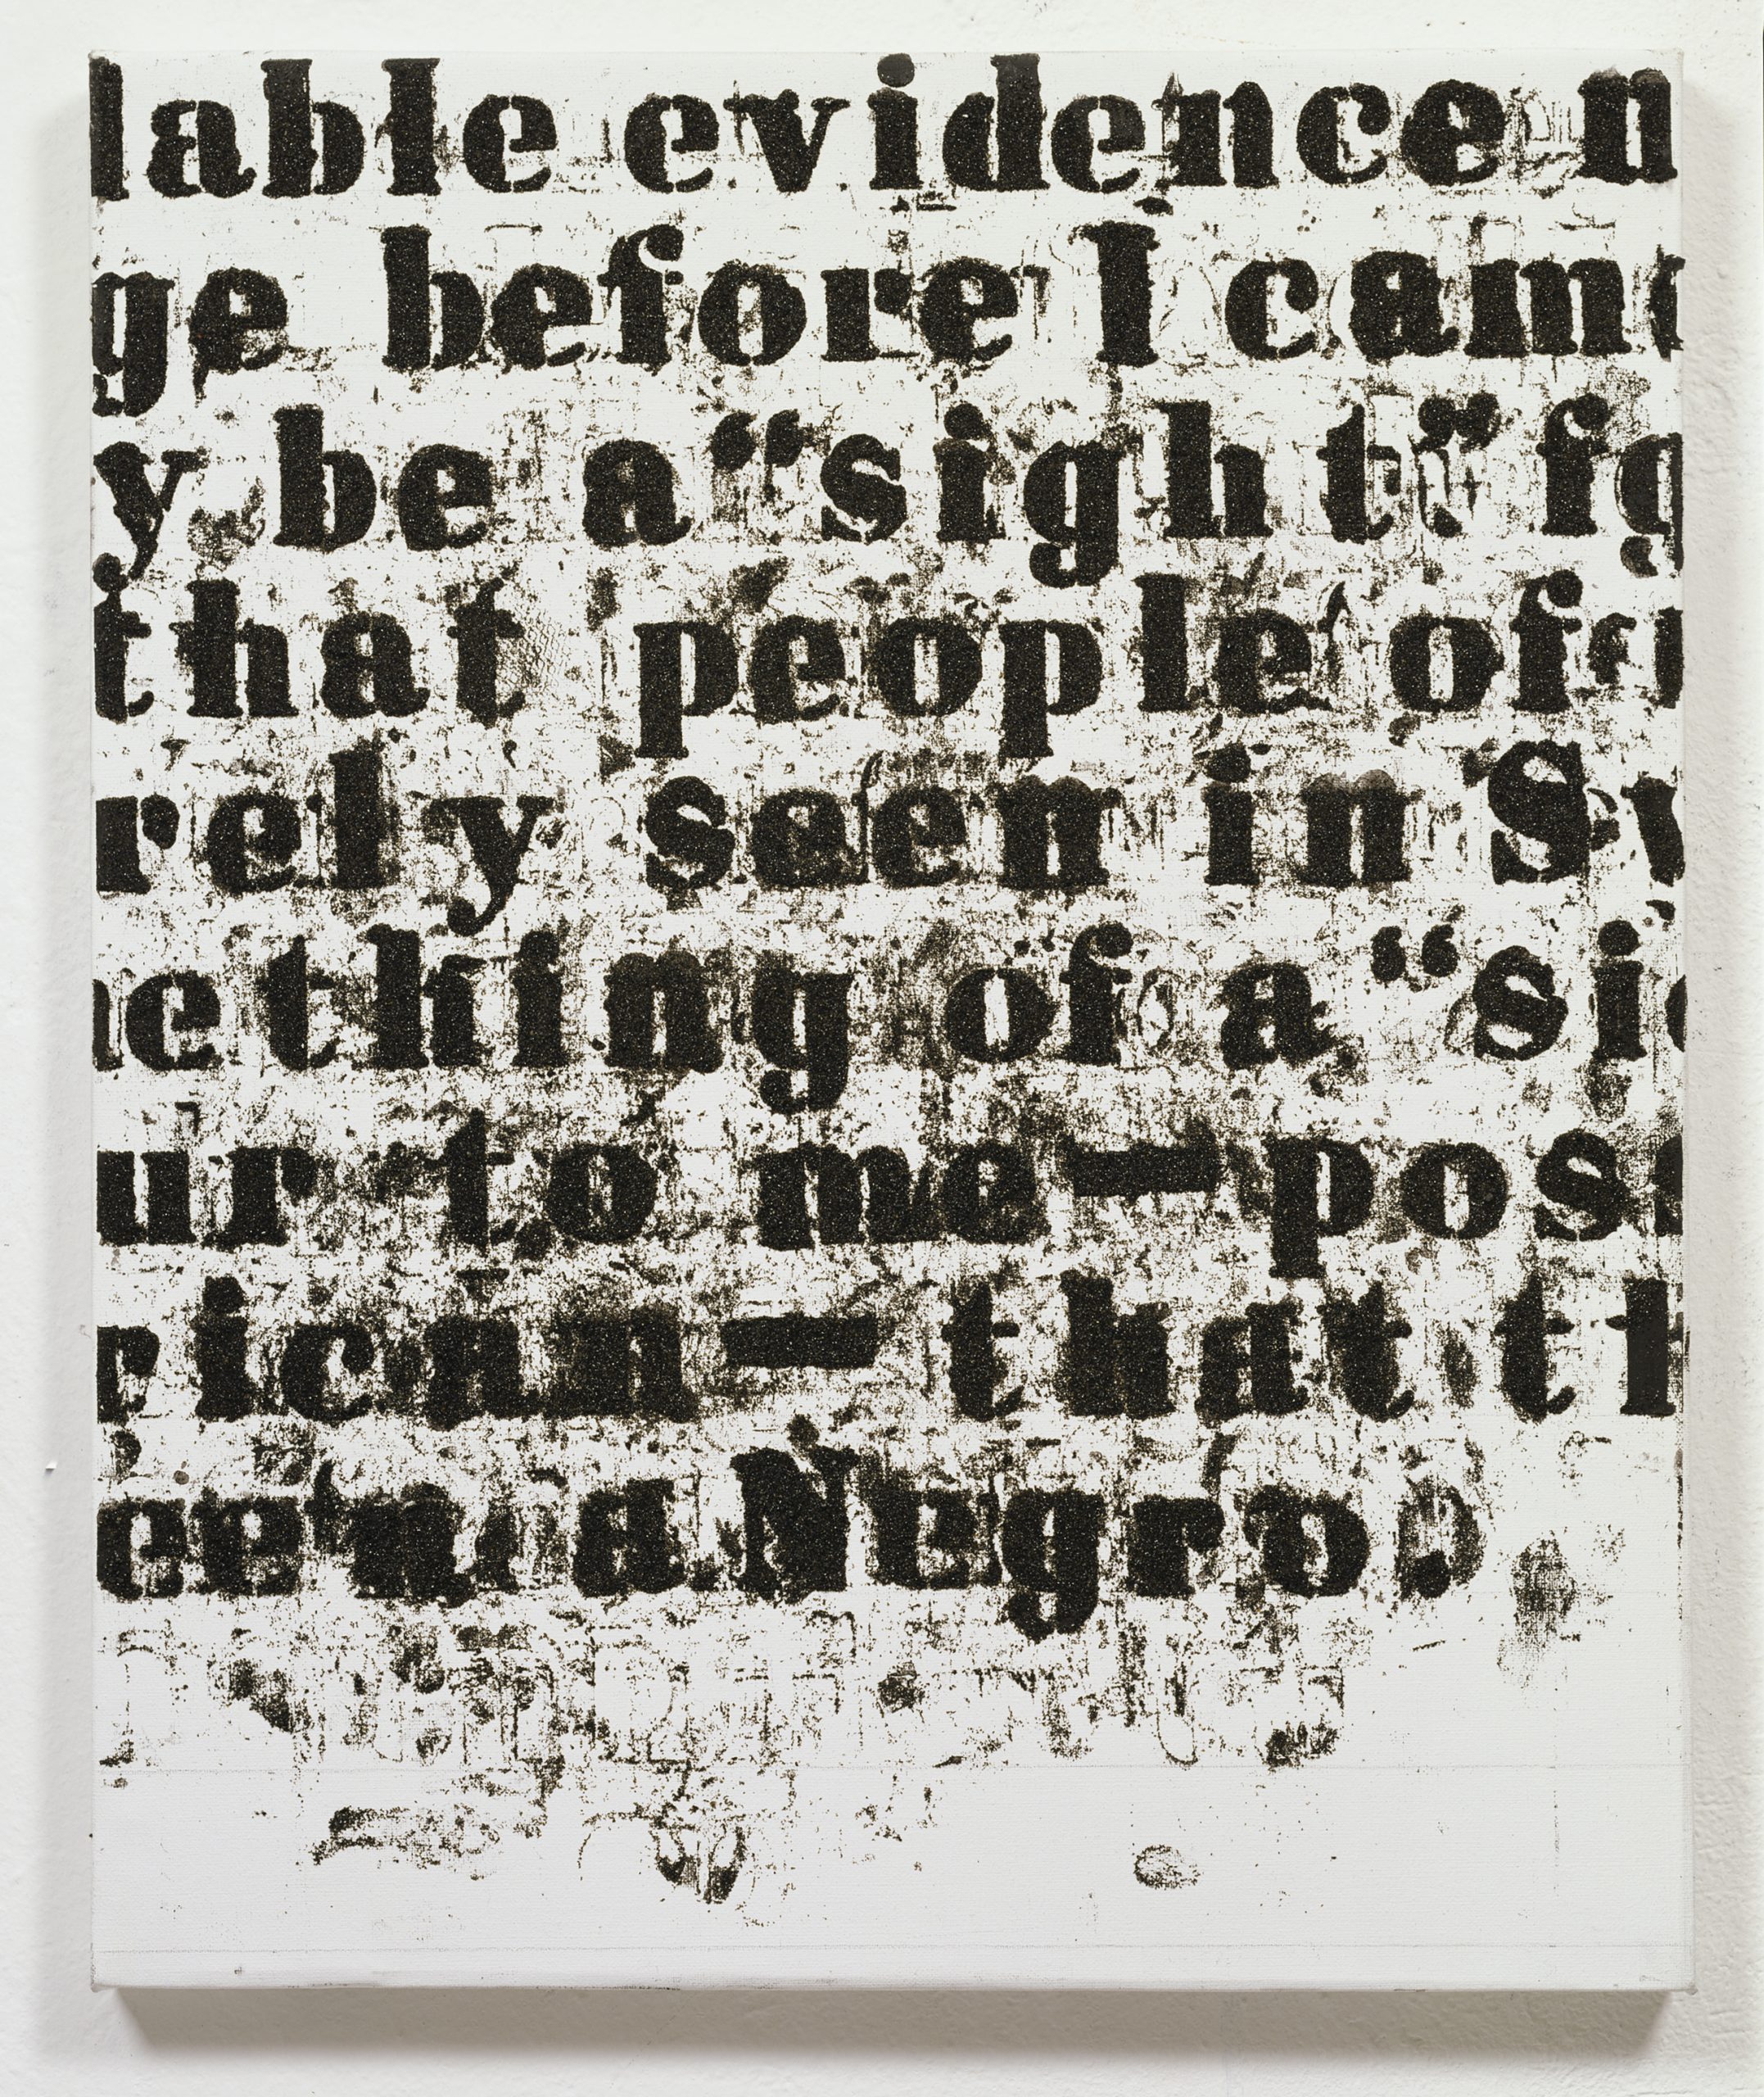 lable evidence n
ge before I came
y be a “sight” fo
that people of
rely seen in Sw
ething of a “sig
ur to me—poss
rican—that th
een a Negro.